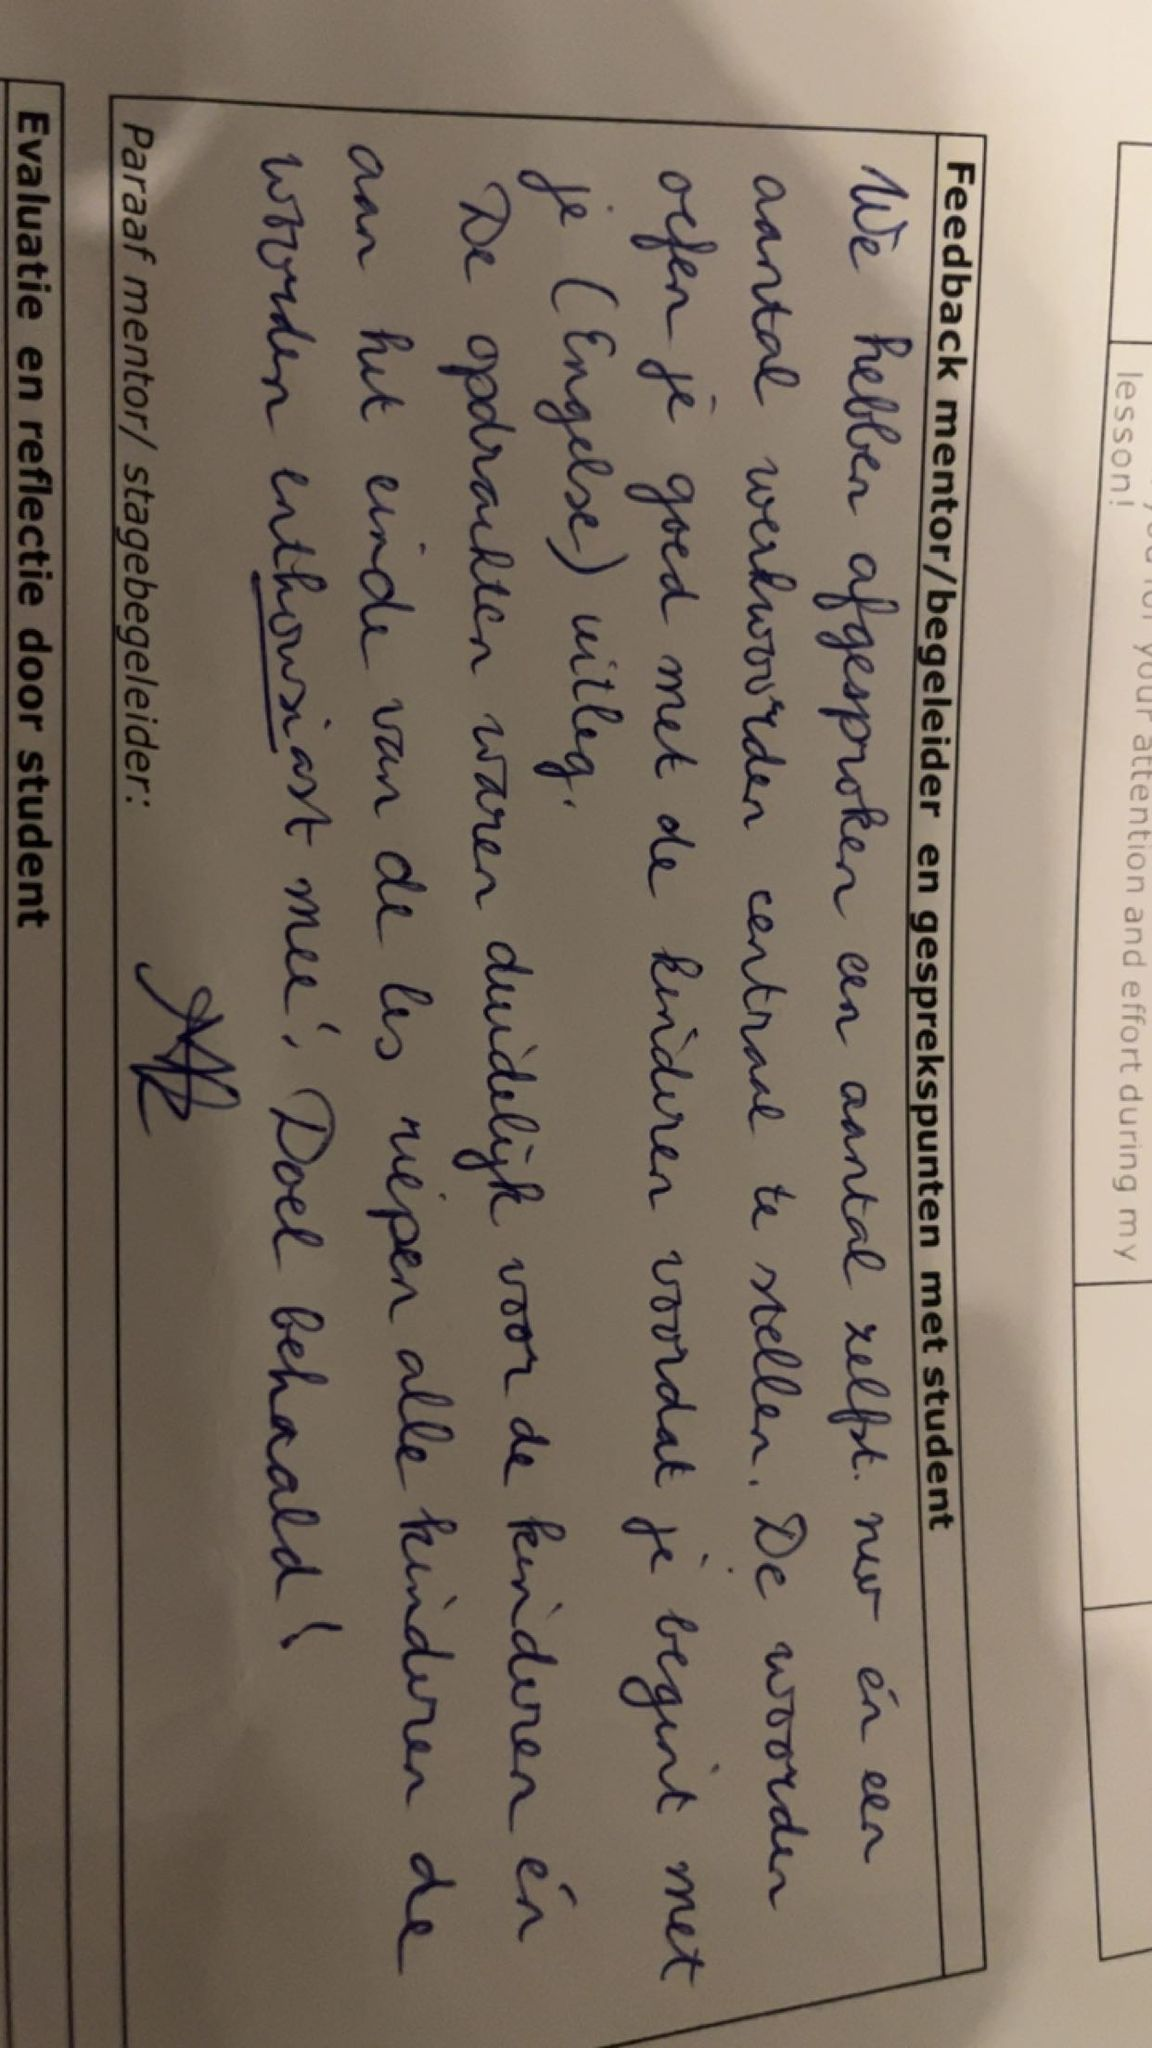 your attention and effort during my
lesson!
Feedback mentor/begeleider en gesprekspunten met student
We hebben afgesproken een aantal zelfst. nw én een
aantal werkwoorden centraal te stellen. De woorden
oefen je goed met de kinderen voordat je begint met
je (Engelse) uitleg.
De opdrachten waren duidelijk voor de kinderen én
aan het einde van de les riepen alle kinderen de
woorden enthousiast mee! Doel behaald!
Paraaf mentor/ stagebegeleider:
Evaluatie en reflectie door student